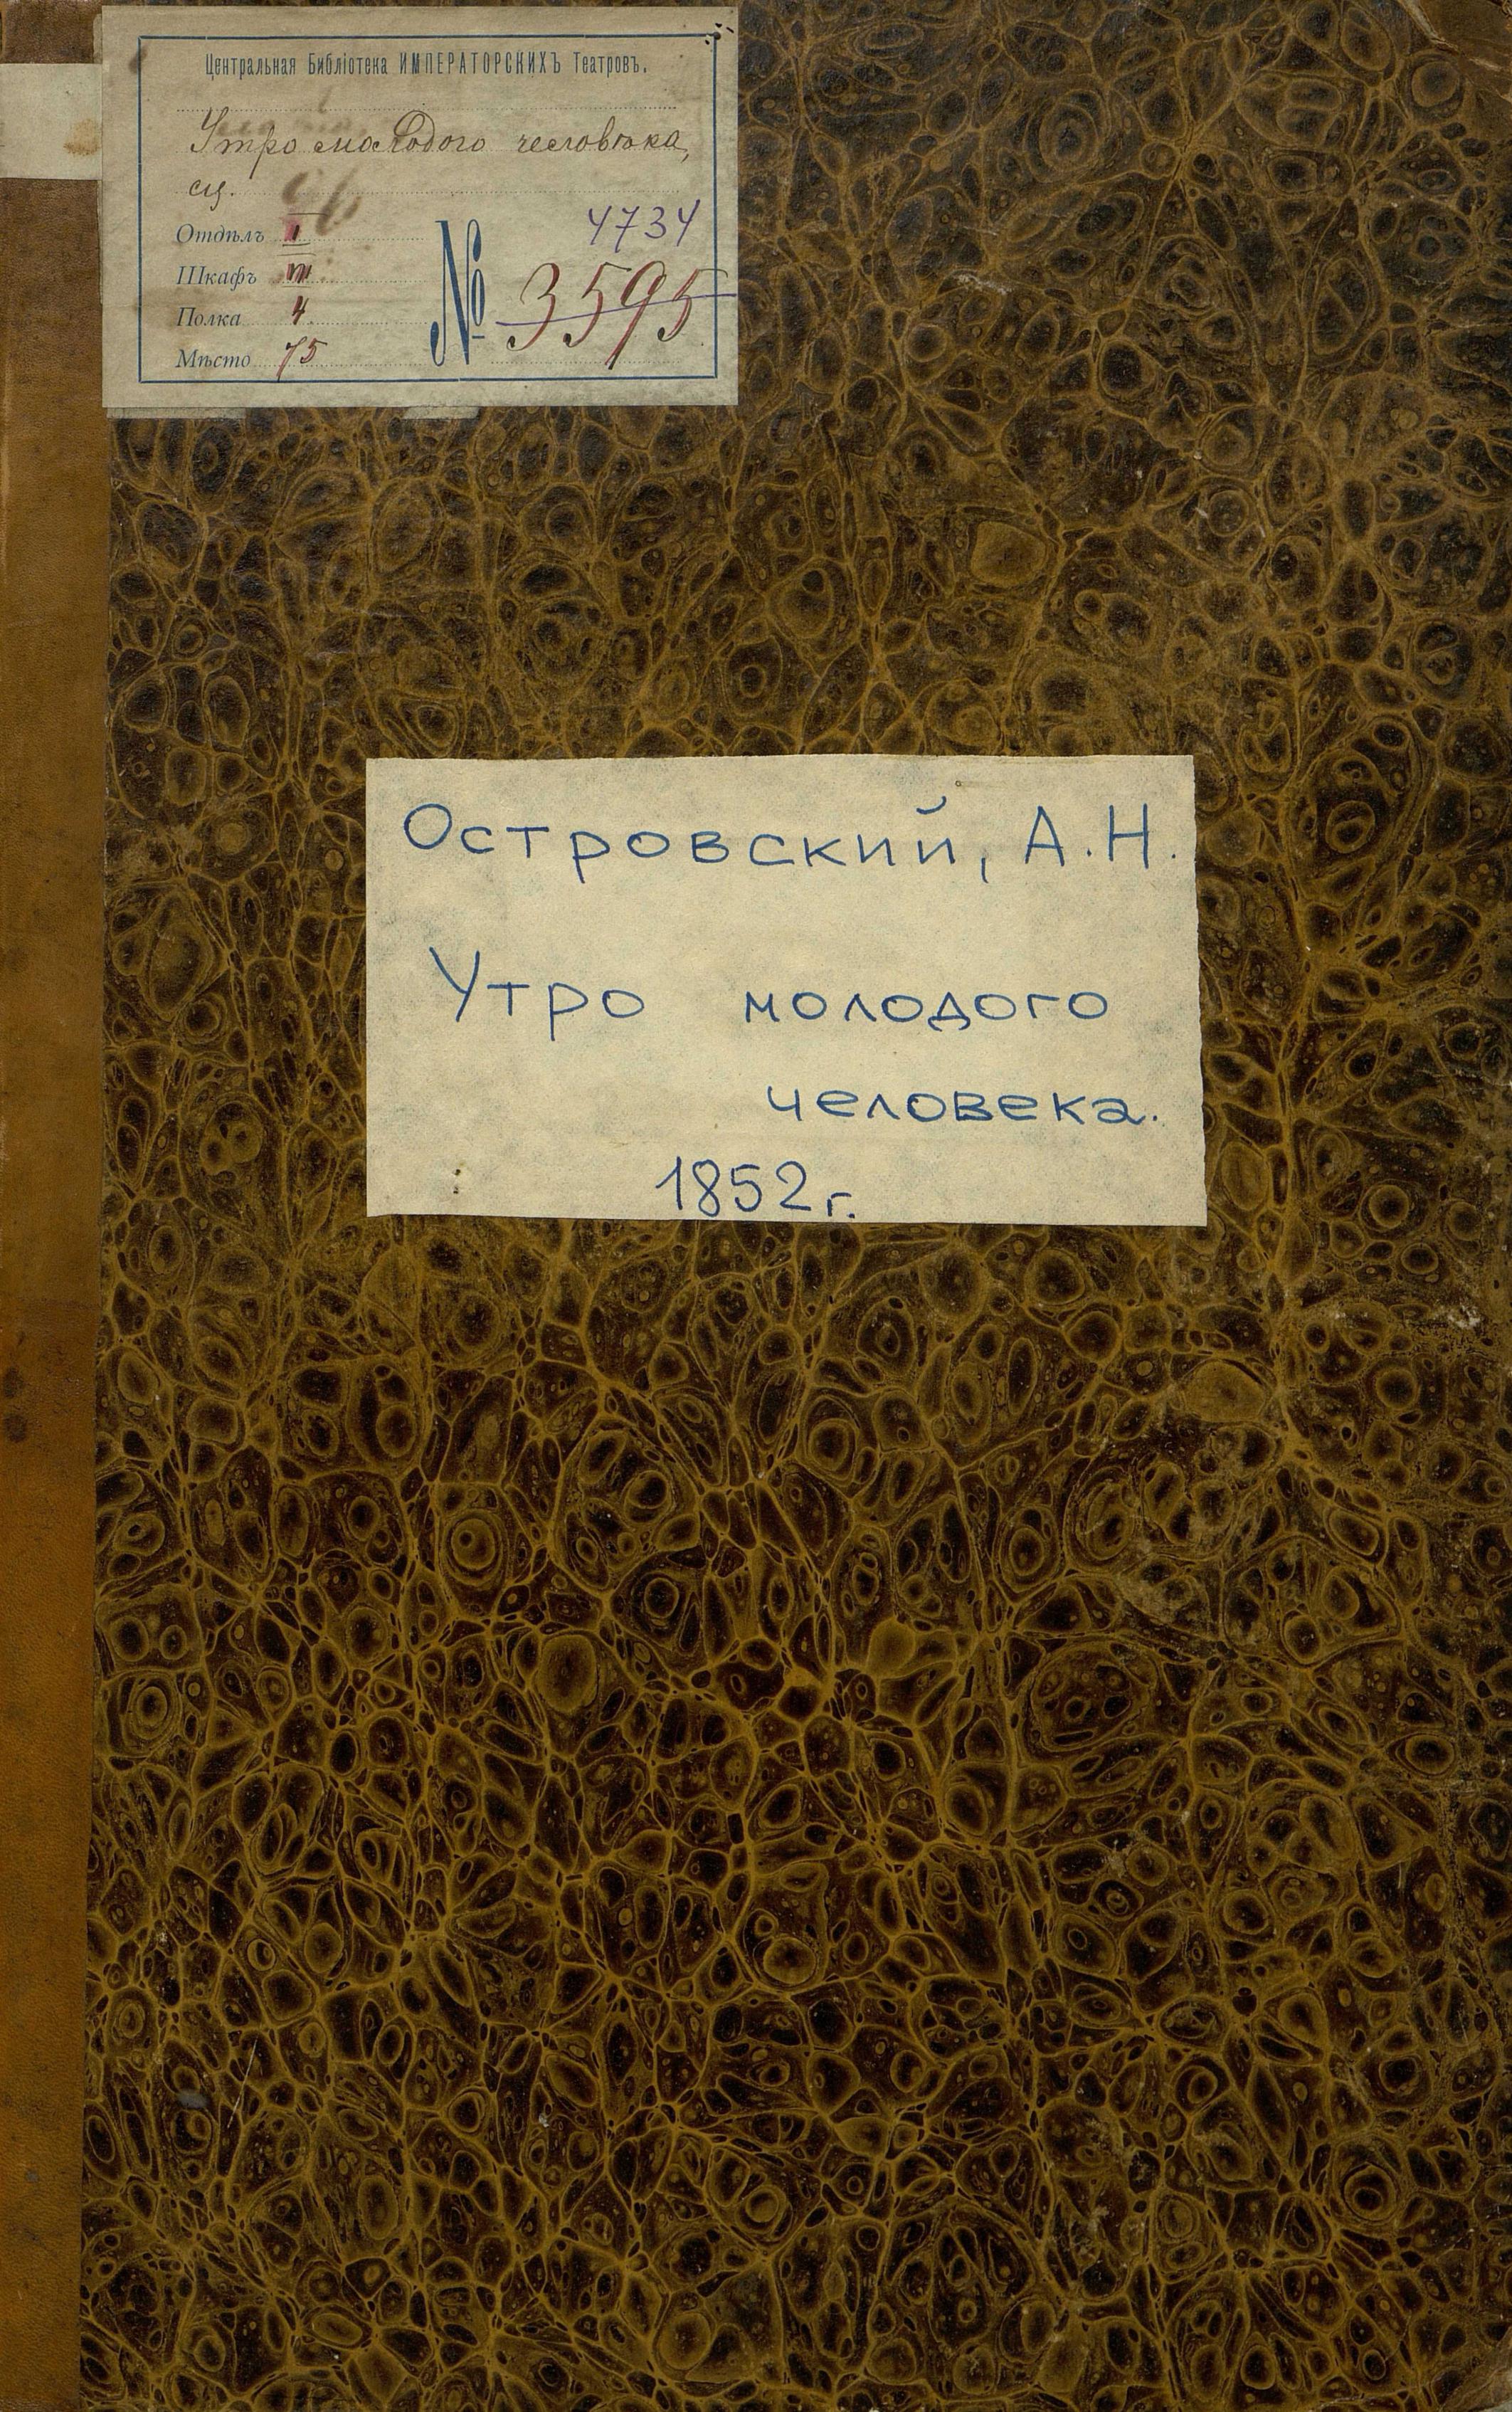 Центральная Библіотека ИМПЕРАТОРСКИХЪ Театровъ.
Утро молодого человѣка,
сц.
Отдѣлъ I
Шкафъ VII
Полка 4
Мѣсто 75
4734
№ 3595
Островский, А.Н.
Утро молодого
человека.
1852г.